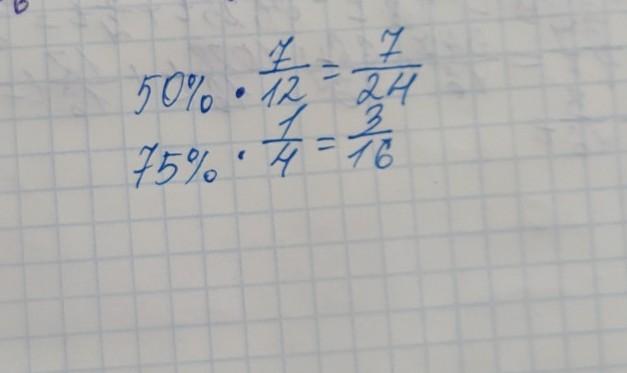 50% · 7/12 = 7/24
75% · 1/4 = 3/16